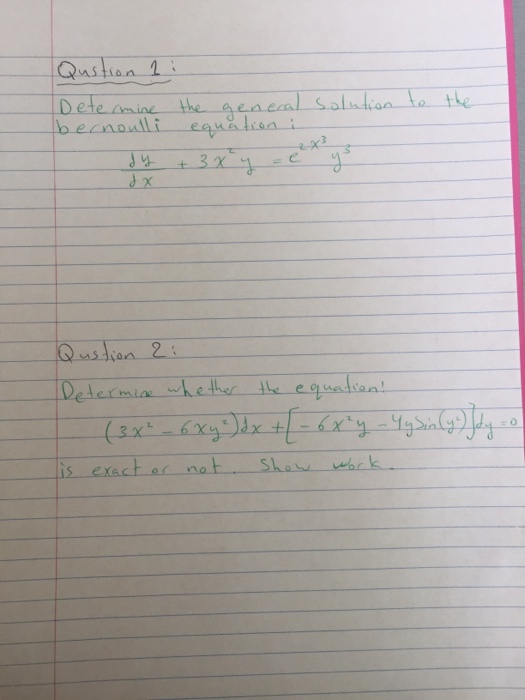 Qustion 1:
Determine the general solution to the
bernoulli equation:
dy/dx + 3x²y = e^{2x³} y³
Qustion 2:
Determine whether the equation:
(3x² - 6xy²)dx + [-6x²y - 4y sin(y²)]dy = 0
is exact or not. Show work.